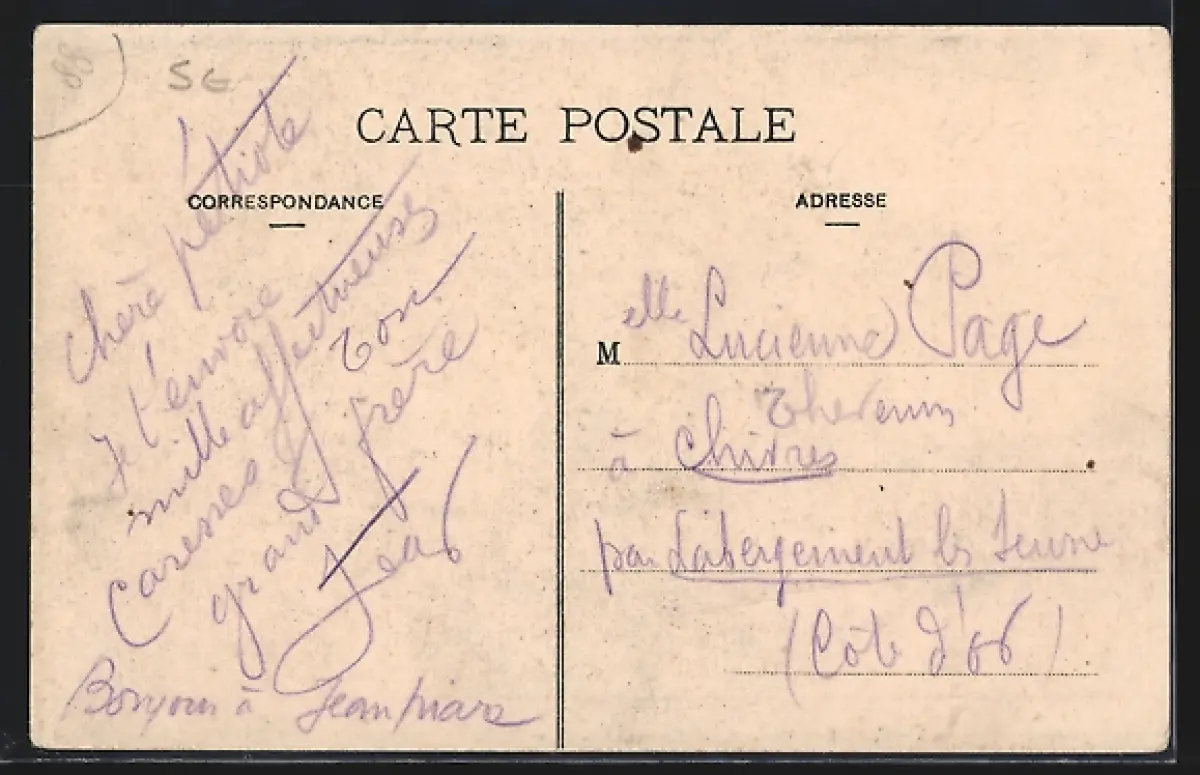 88
SG
CARTE POSTALE
CORRESPONDANCE
Chère petiote
Je t'envoie
mille affectueuses
caresses Ton
grand frère
Jean
Bonjour à
ADRESSE
Melle Lucienne Page
à Chivres
par Labergement les Seurre
(Côte d'Or)